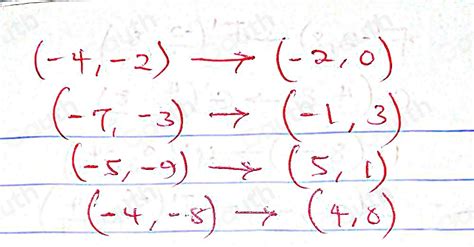 (-4, -2) → (-2, 0)
(-7, -3) → (-1, 3)
(-5, -9) → (5, 1)
(-4, -8) → (4, 0)